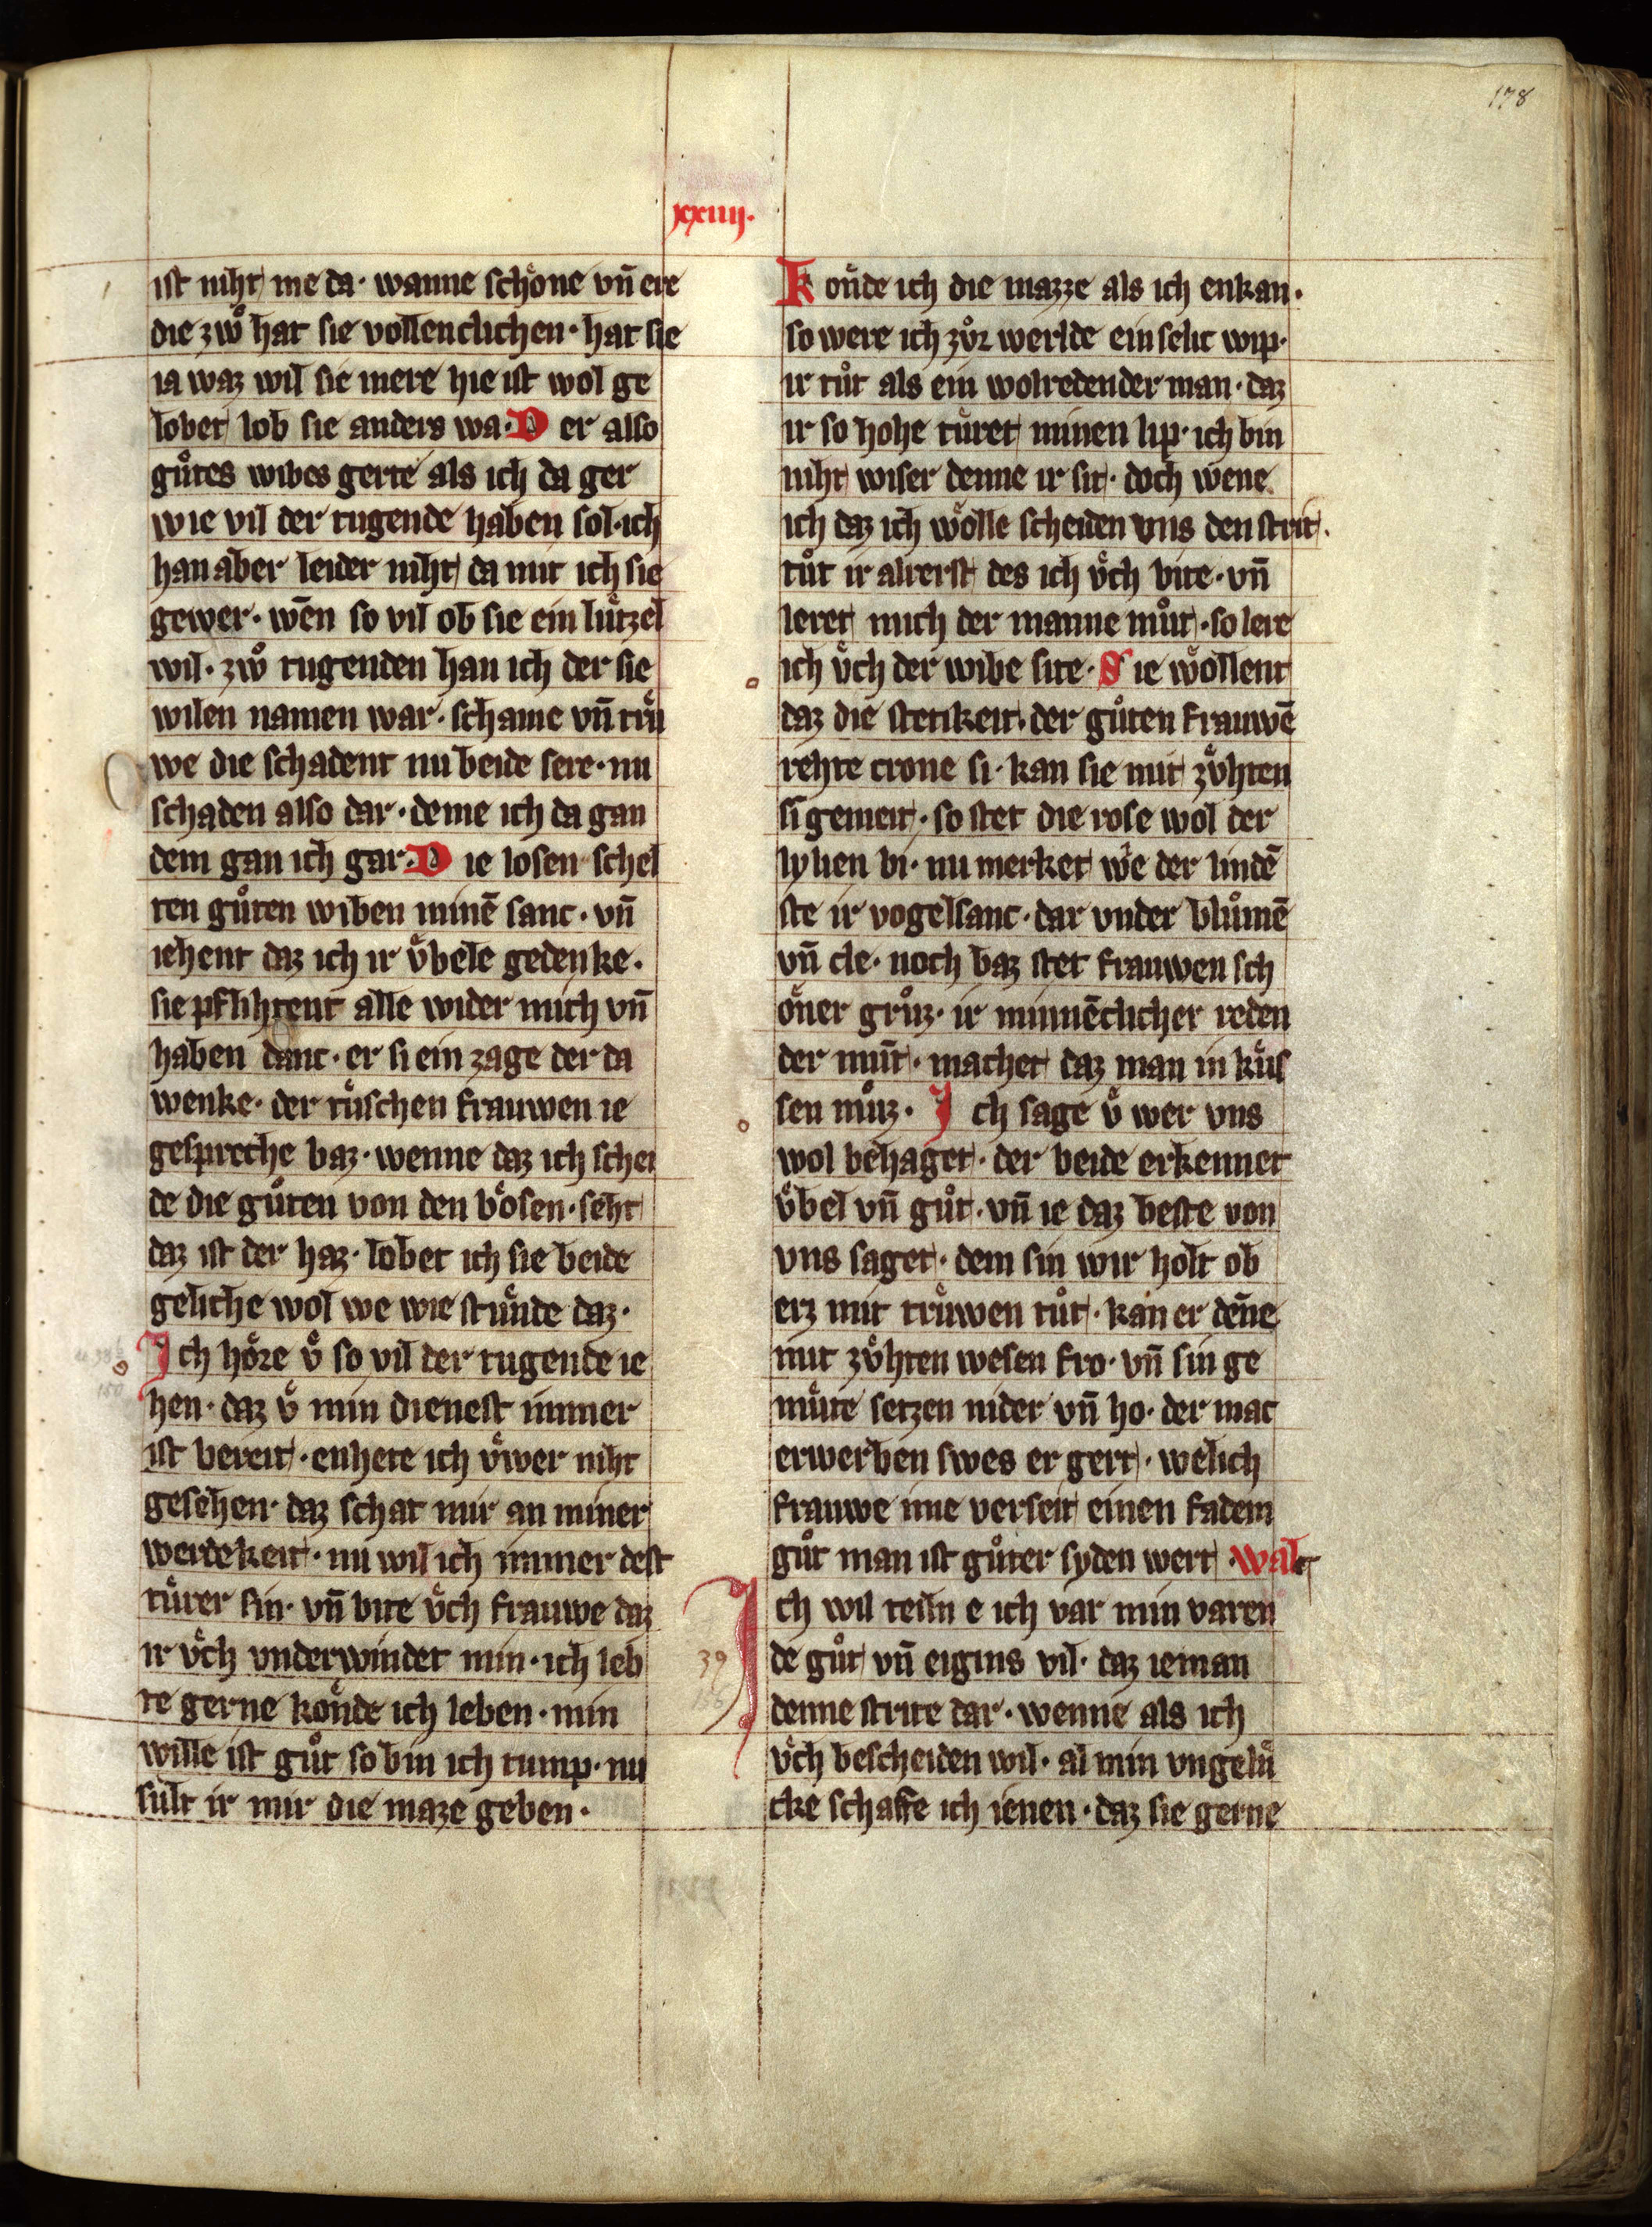 178
xxiiij.
ist niht me da· wanne schoͤne vn̄ ere
die zwͦ hat sie vollenclichen· hat sie
ia waz wil sie mere hie ist wol ge
lobet lob sie anders wa· D er also
guͦtes wibes gerte als ich da ger
wie vil der tugende haben sol· ich
han aber leider niht da mit ich sie
gewer· wēn so vil ob sie ein luͤtzel
wil· zwͦ tugenden han ich der sie
wilen namen war· schame vn̄ truͤ
we die schadent nu beide sere· nu
schaden also dar· deme ich da gan
dem gan ich gar· D ie losen schel
ten guͦten wiben minē sanc· vn̄
iehent daz ich ir vͤbele gedenke·
sie pflihtent alle wider mich vn̄
haben danc· er si ein zage der da
wenke· der tuͤschen frauwen ie
gespreche baz· wenne daz ich schei
de die guͦten von den boͤsen· seht
daz ist der haz· lobet ich sie beide
geliche wol we wie stuͤnde daz·
Ich hoͤre vͤ so vil der tugende ie
hen· daz vͤ min dienest immer
ist bereit· enhete ich vͤwer niht
gesehen· daz schat mir an miner
werdekeit· nu wil ich immer dest
tuͤrer sin· vn̄ bite vͤch frauwe daz
ir vͤch vnderwindet min· ich leb
te gerne koͤnde ich leben· min
wille ist guͦt so bin ich tump· nu
sult ir mir die maze geben·
K oͤnde ich die mazze als ich enkan·
so were ich zuͦr werlde ein selic wip·
ir tuͦt als ein wolredender man· daz
ir so hohe tuͤret minen lip· ich bin
niht wiser denne ir sit· doch wene
ich daz ich woͤlle scheiden vns den strit·
tuͦt ir alrerst des ich vͤch bite· vn̄
leret mich der manne muͦt· so lere
ich vͤch der wibe site· S ie woͤllent
daz die stetikeit· der guͦten frauwē
rehte crone si· kan sie mit zvͤhten
si gemeit· so stet die rose wol der
lylien bi· nu merket wͤe der lindē
ste ir vogelsanc· dar vnder bluͦmē
vn̄ cle· noch baz stet frauwen sch
oͤner gruͦz· ir minnēclicher reden
der mūt· machet daz man in kuͤs
sen muͦz· I ch sage vͤ wer vns
wol behaget· der beide erkennet
vͤbel vn̄ guͦt· vn̄ ie daz beste von
vns saget· dem sin wir holt ob
erz mit truͤwen tuͦt· kan er dēne
mit zvͤhten wesen fro· vn̄ sin ge
muͤte setzen nider vn̄ ho· der mac
erwerben swes er gert· welich
frauwe ime verseit einen fadem
guͦt man ist guͦter syden wert· walt
Ich wil teiln e ich var min varen
de guͦt vn̄ eigins vil· daz ieman
denne strite dar· wenne als ich
vͤch bescheiden wil· al min vngeluͤ
cke schaffe ich ienen· daz sie gerne
39